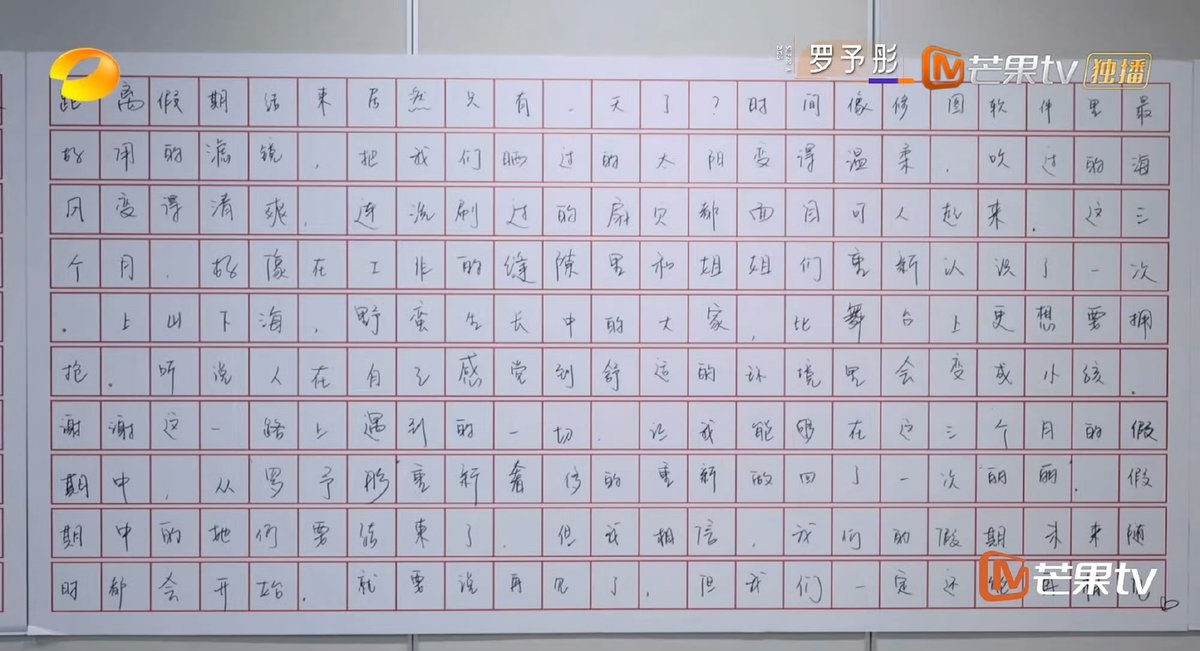 罗予彤
芒果TV 独播
距离假期结束居然只有一天了？时间像修图软件里最
好用的滤镜，把我们晒过的太阳变得温柔，吹过的海
风变得清爽，连洗刷过的厕所都面目可人起来。这三
个月，好像在工作的缝隙里和姐姐们重新认识了一次
。上山下海，野蛮生长中的大家，比舞台上更想要拥
抱。听说人在自己感觉到舒适的环境里会变成小孩。
谢谢这一路上遇到的一切，让我能够在这三个月的假
期中，从罗予彤重新奢侈的重新做回了一次丽丽。假
期中的她们要结束了，但我相信，我们的假期未来随
时都会开始。就要说再见了，但我们一定还能
芒果TV